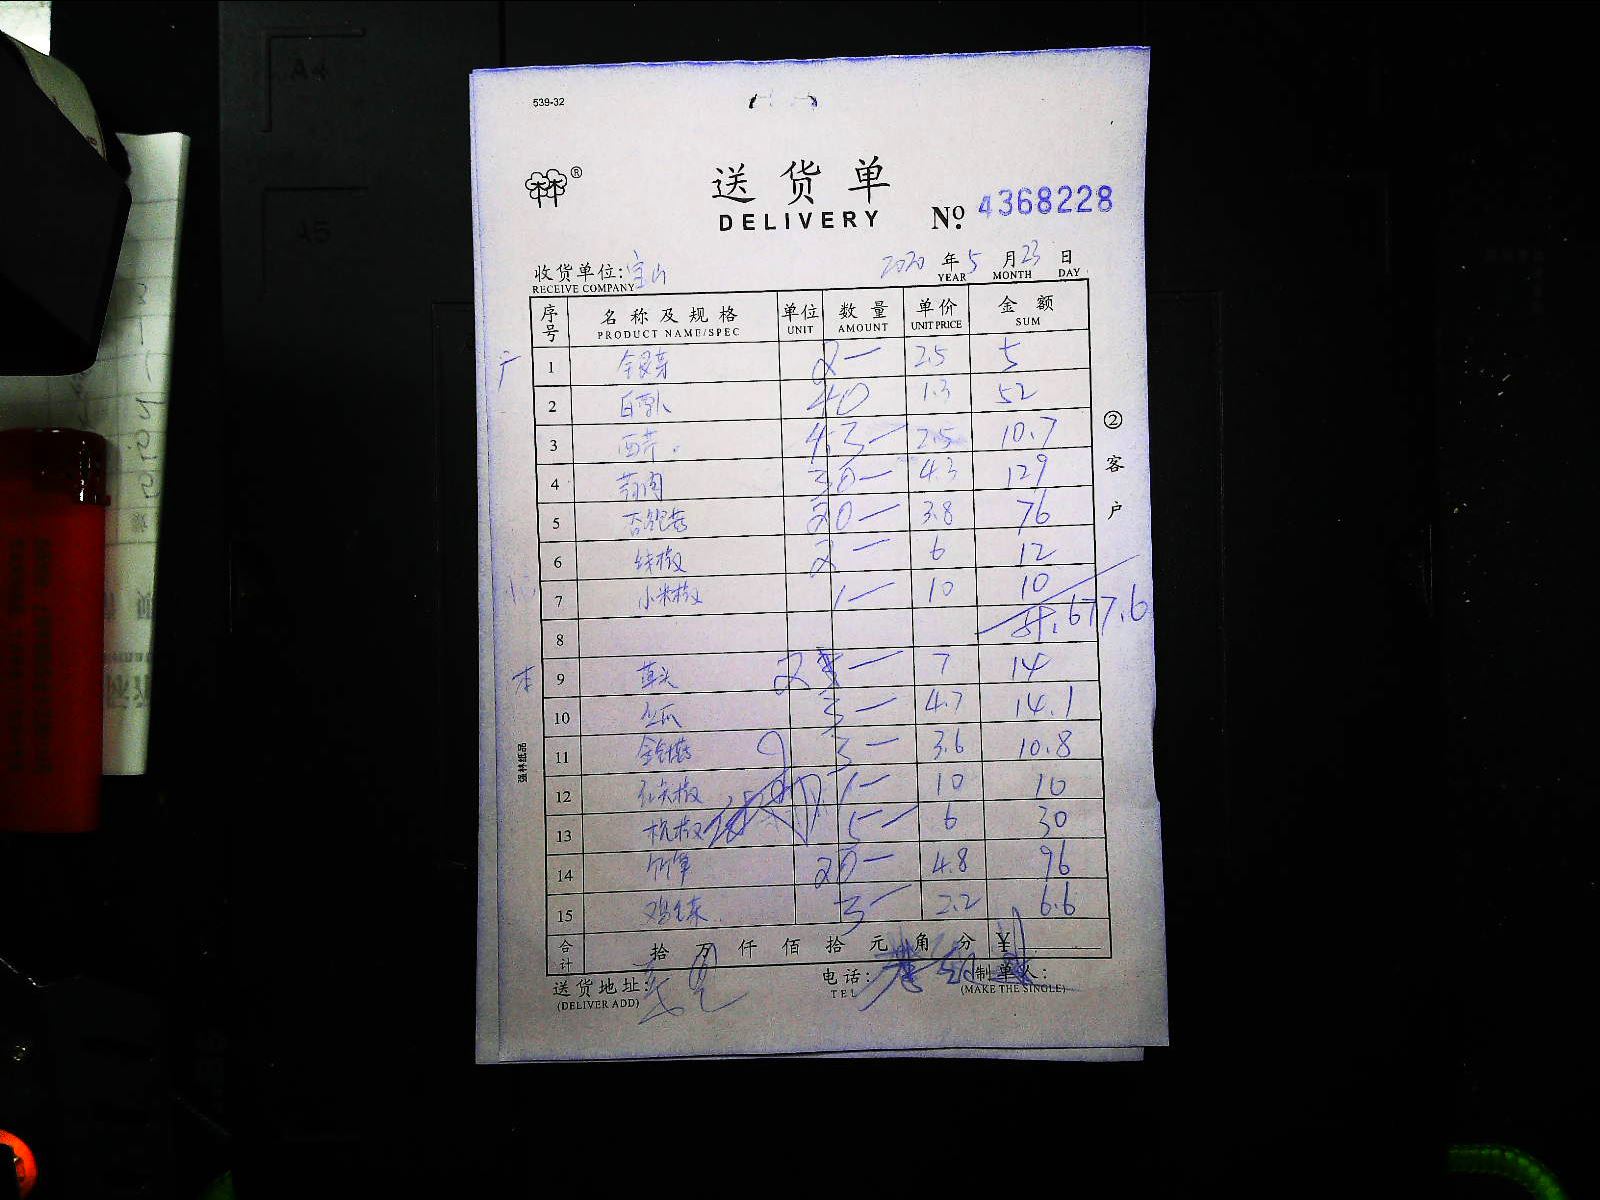 539-32
林®
送货单
DELIVERY
№ 4368228
收货单位:宝山 2020 年 5 月 23 日
RECEIVE COMPANY YEAR MONTH DAY
序号 名称及规格 单位 数量 单价 金额
PRODUCT NAME/SPEC UNIT AMOUNT UNIT PRICE SUM
1 银芽 2 2.5 5
2 40 1.3 52
3 西芹 4.3 2.5 10.7
4 30 4.3 129
5 杏鲍菇 20 3.8 76
6 线椒 2 6 12
7 小米椒 1 10 10
8 677.6
本 9 草头 2 7 14
10 3 4.7 14.1
11 金针菇 3 3.6 10.8
12 红尖椒 1 10 10
13 杭椒 5 6 30
14 竹笋 20 4.8 96
15 鸡毛菜 3 2.2 6.6
合计 拾 万 仟 佰 拾 元 角 分 ¥
送货地址: 电话: 制单人:
(DELIVER ADD) TEL (MAKE THE SINGLE)
②客户
强林纸品
A4
A5